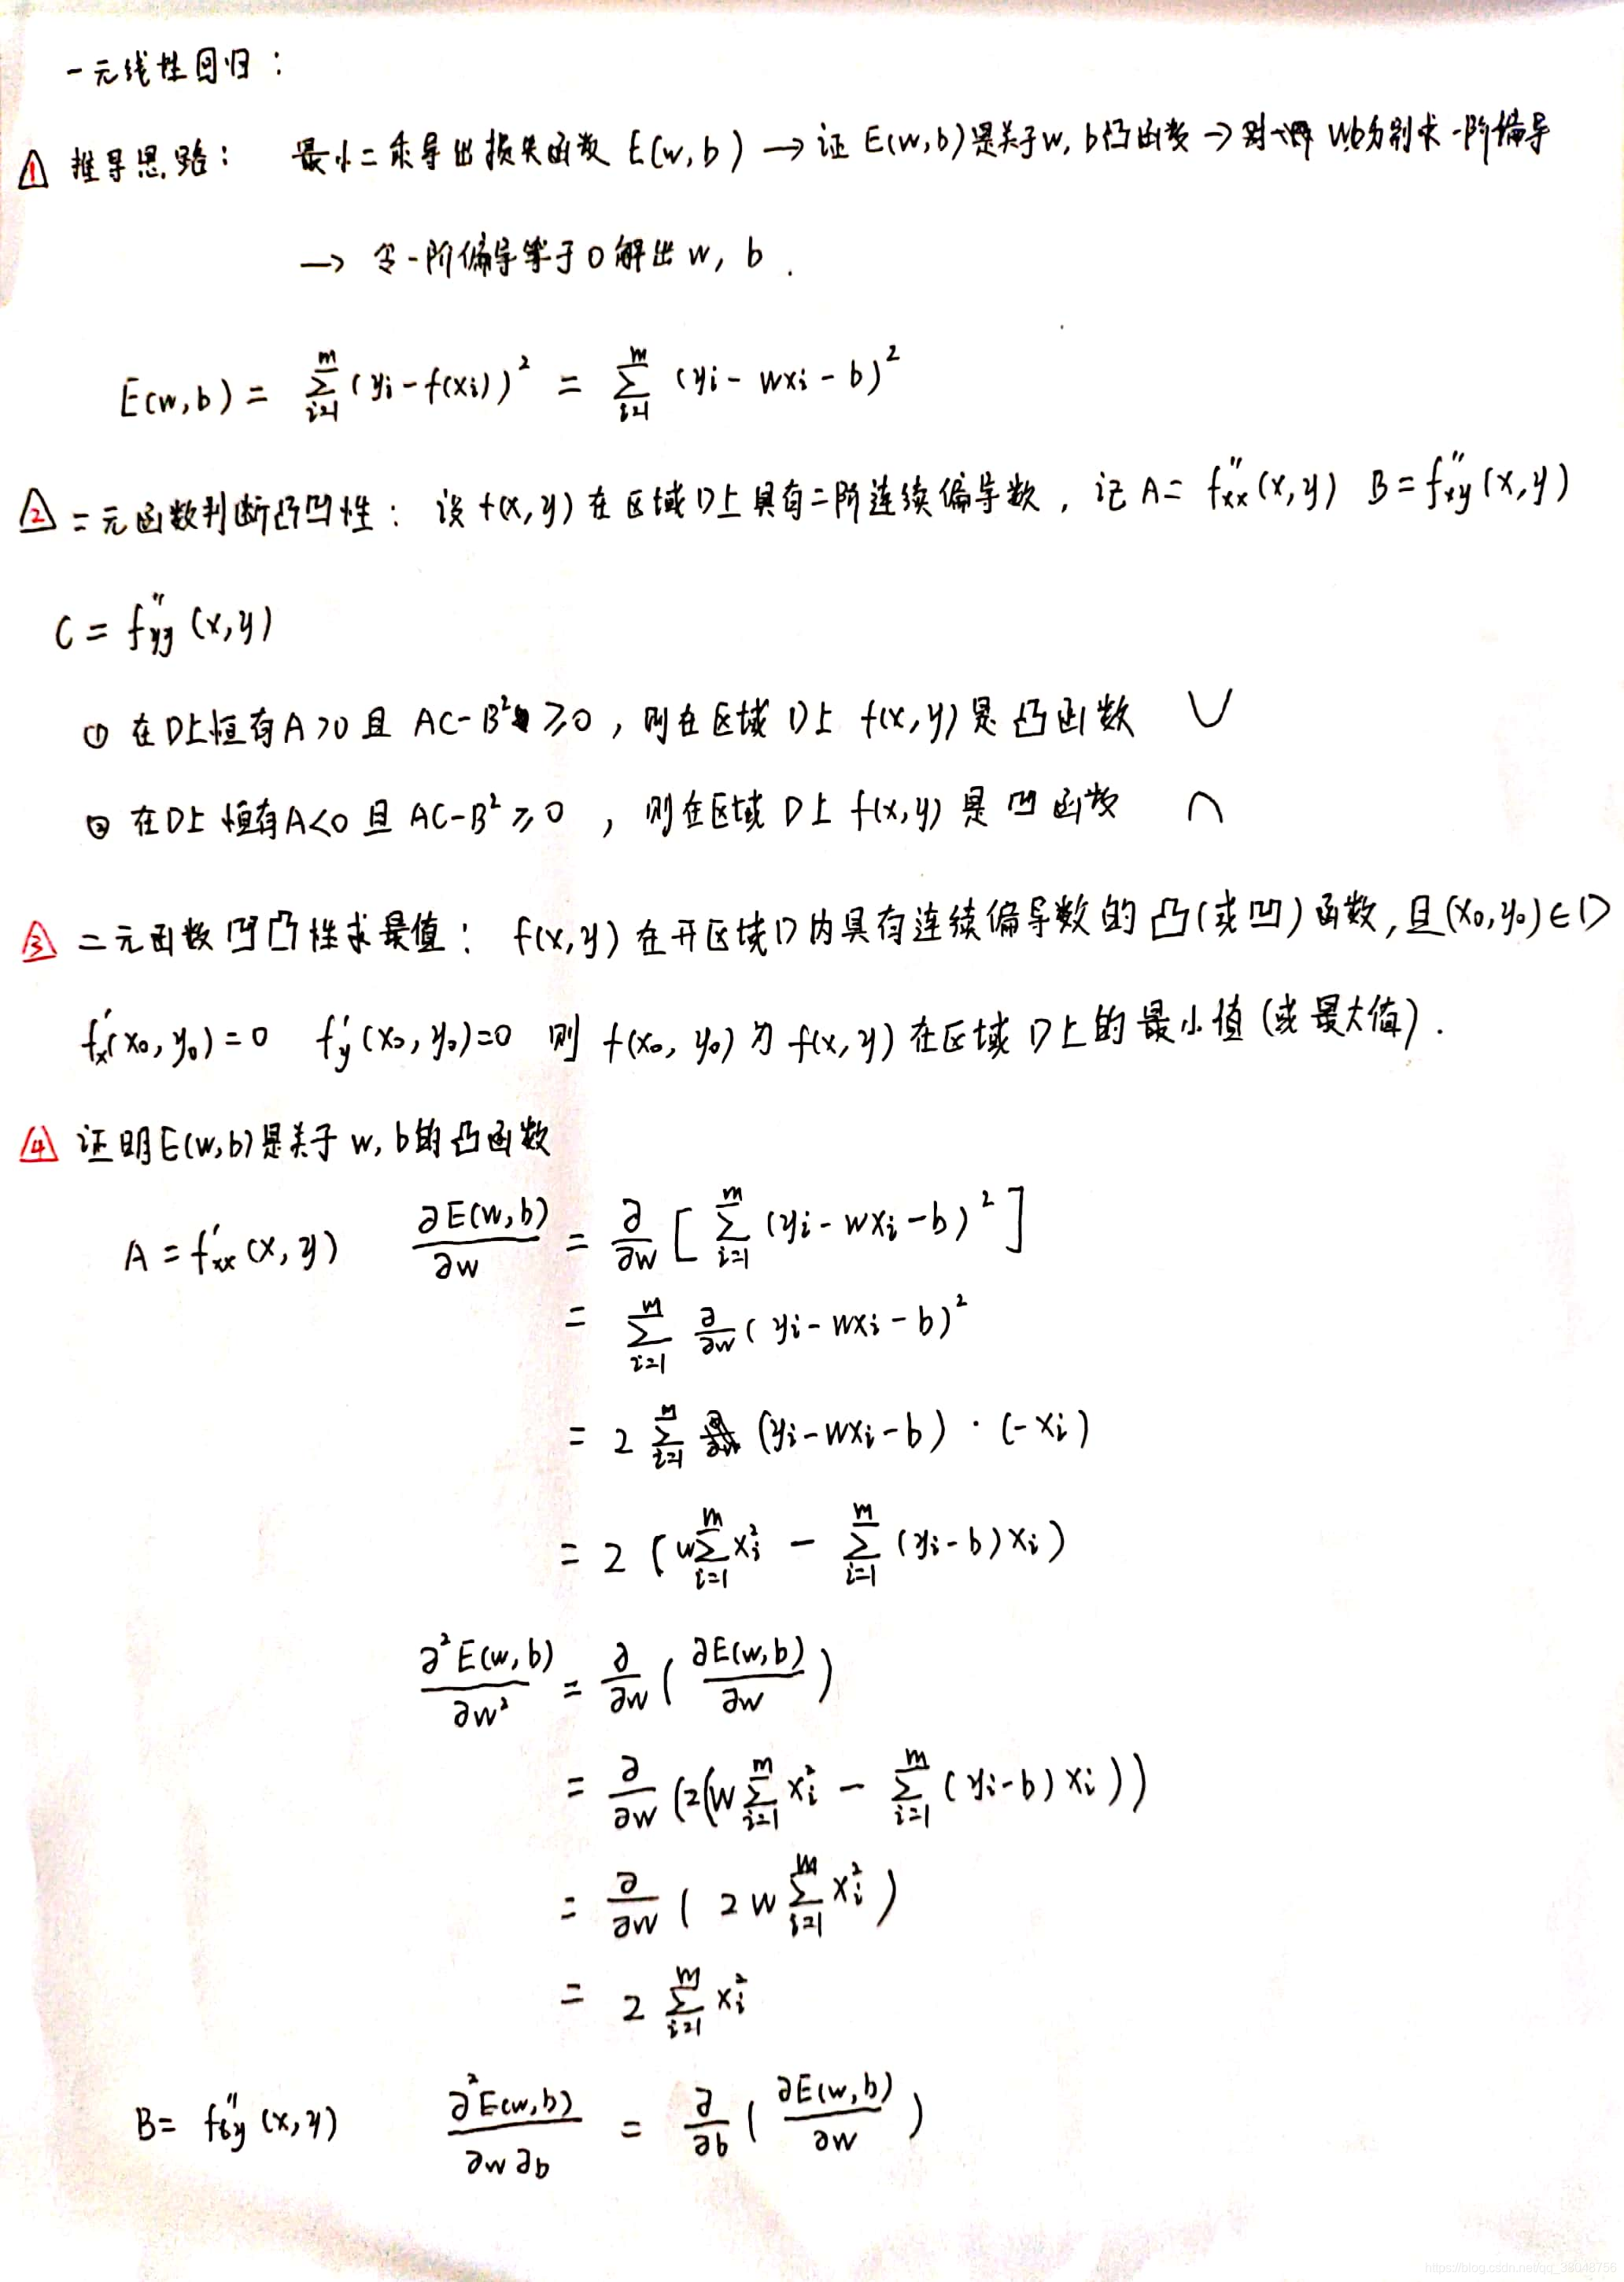 一元线性回归：
1 推导思路： 最小二乘导出损失函数 E(w,b) → 证 E(w,b)是关于w,b凸函数 → 对 w,b分别求一阶偏导
→ 令一阶偏导等于0解出 w, b .
E(w,b) = ∑_{i=1}^{m} (yi - f(xi))² = ∑_{i=1}^{m} (yi - wxi - b)²
2 二元函数判断凸凹性： 设 f(x,y) 在区域D上具有二阶连续偏导数，记 A = f''xx (x,y) B = f''xy (x,y)
C = f''yy (x,y)
① 在D上恒有 A>0 且 AC-B² ≥0，则在区域 D上 f(x,y) 是凸函数 ∪
② 在D上恒有A<0 且 AC-B² ≥0 ，则在区域 D上 f(x,y) 是凹函数 ∩
3 二元函数凹凸性求最值： f(x,y) 在开区域D内具有连续偏导数的凸(或凹)函数,且(x0,y0)∈D
f'x(x0,y0)=0 f'y(x0,y0)=0 则 f(x0,y0) 为 f(x,y) 在区域 D上的最小值(或最大值).
4 证明E(w,b)是关于 w,b的凸函数
A = f'xx (x,y) ∂E(w,b)/∂w = ∂/∂w [ ∑_{i=1}^{m} (yi - wxi - b)² ]
= ∑_{i=1}^{m} ∂/∂w (yi - wxi - b)²
= 2 ∑_{i=1}^{m} (yi - wxi - b) · (-xi)
= 2 (w∑_{i=1}^{m} xi² - ∑_{i=1}^{m} (yi - b)xi)
∂²E(w,b)/∂w² = ∂/∂w ( ∂E(w,b)/∂w )
= ∂/∂w (2(w∑_{i=1}^{m} xi² - ∑_{i=1}^{m} (yi-b)xi))
= ∂/∂w ( 2w∑_{i=1}^{m} xi² )
= 2 ∑_{i=1}^{m} xi²
B = f''xy (x,y) ∂²E(w,b)/∂w∂b = ∂/∂b ( ∂E(w,b)/∂w )
https://blog.csdn.net/qq_38048756